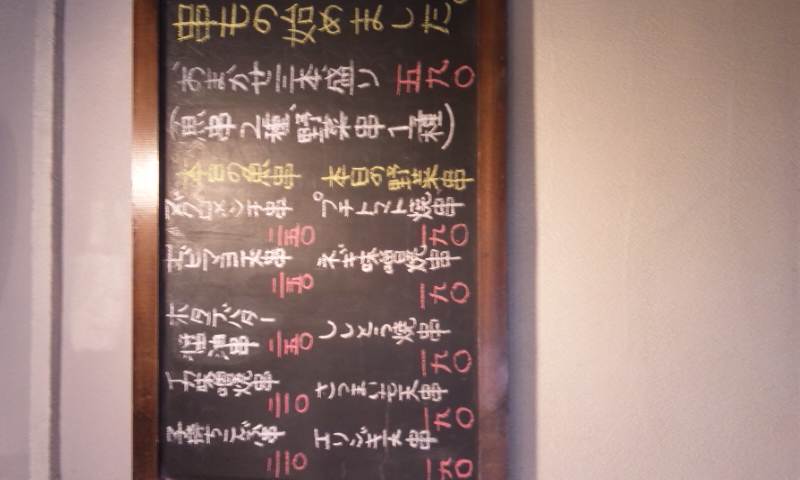 串もの始めました。
おまかせ三本盛り 五九〇
(魚串2種、野菜串1種)
本日の魚串
マグロメンチ串
二五〇
エビマヨ天串
二五〇
ホタテバター
醤油串 二五〇
イカ味噌焼串
二一〇
子持ちこんぶ串
二一〇
本日の野菜串
プチトマト焼串
一九〇
ねぎ味噌焼串
一九〇
ししとう焼串
一九〇
さつまいも天串
一九〇
エリンギ天串
一九〇